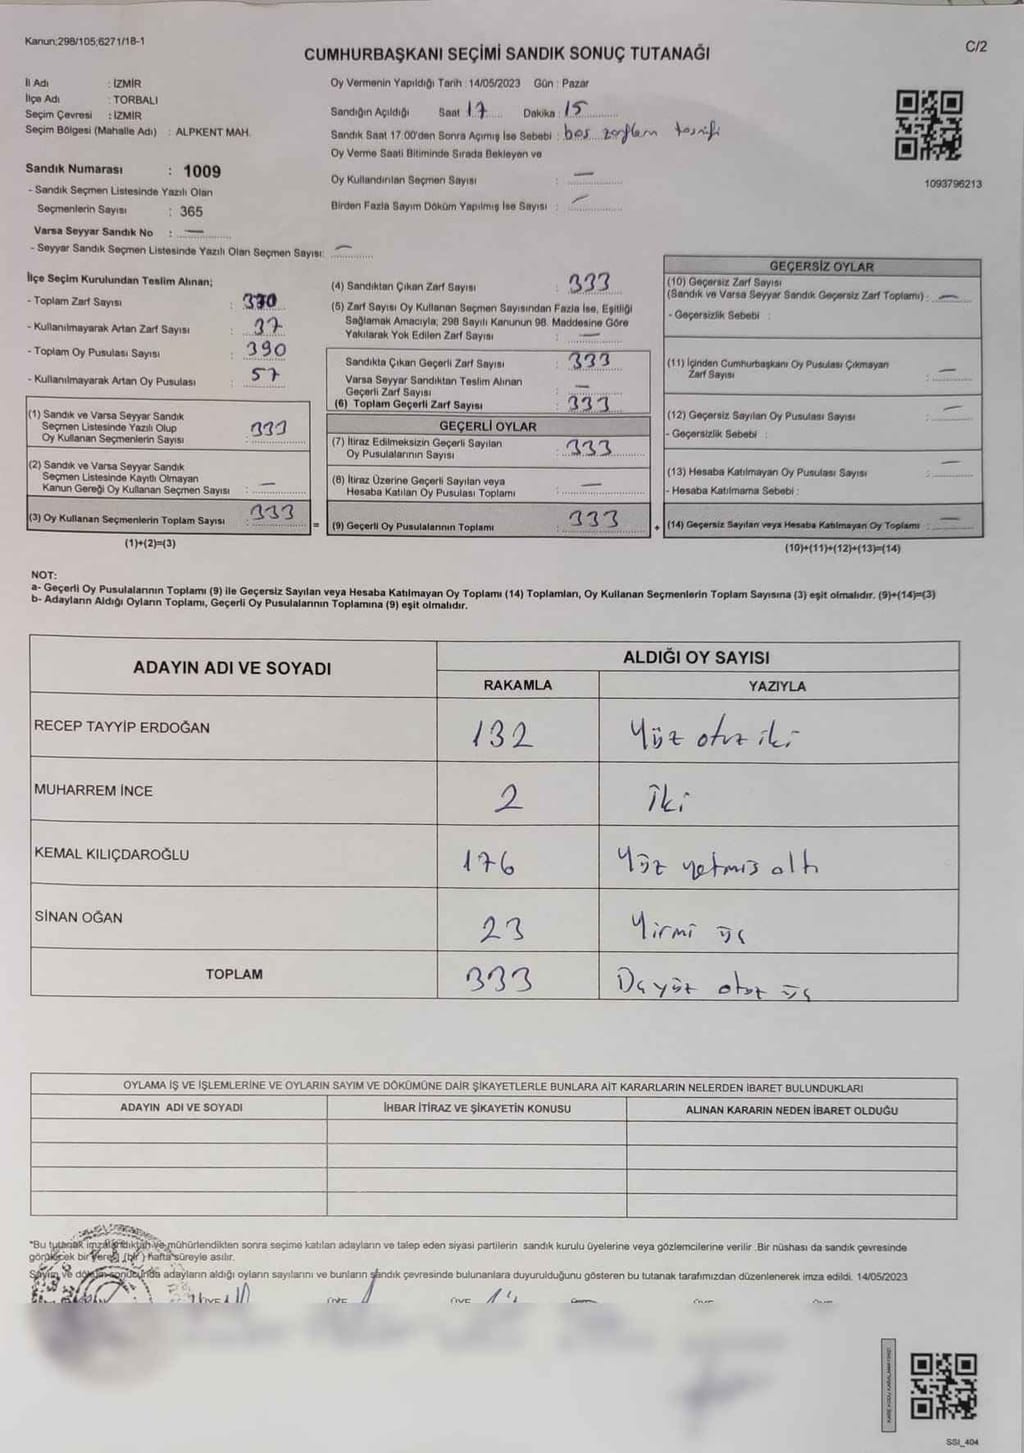 Kanun;298/105;6271/18-1
C/2
CUMHURBAŞKANI SEÇİMİ SANDIK SONUÇ TUTANAĞI
İl Adı : İZMİR
İlçe Adı : TORBALI
Seçim Çevresi : İZMİR
Seçim Bölgesi (Mahalle Adı) : ALPKENT MAH.
Oy Vermenin Yapıldığı Tarih : 14/05/2023 Gün : Pazar
Sandığın Açıldığı Saat 17 Dakika : 15
Sandık Saat 17.00'den Sonra Açımış İse Sebebi : boş zarfların tasnifi
Oy Verme Saati Bitiminde Sırada Bekleyen ve
Oy Kullandırılan Seçmen Sayısı : —
Birden Fazla Sayım Döküm Yapılmış İse Sayısı : —
1093796213
Sandık Numarası : 1009
- Sandık Seçmen Listesinde Yazılı Olan
Seçmenlerin Sayısı : 365
Varsa Seyyar Sandık No : —
- Seyyar Sandık Seçmen Listesinde Yazılı Olan Seçmen Sayısı: —
İlçe Seçim Kurulundan Teslim Alınan;
- Toplam Zarf Sayısı : 370
- Kullanılmayarak Artan Zarf Sayısı : 37
- Toplam Oy Pusulası Sayısı : 390
- Kullanılmayarak Artan Oy Pusulası : 57
(1) Sandık ve Varsa Seyyar Sandık
Seçmen Listesinde Yazılı Olup
Oy Kullanan Seçmenlerin Sayısı : 333
(2) Sandık ve Varsa Seyyar Sandık
Seçmen Listesinde Kayıtlı Olmayan
Kanun Gereği Oy Kullanan Seçmen Sayısı : —
(3) Oy Kullanan Seçmenlerin Toplam Sayısı : 333 =
(1)+(2)=(3)
(4) Sandıktan Çıkan Zarf Sayısı : 333
(5) Zarf Sayısı Oy Kullanan Seçmen Sayısından Fazla İse, Eşitliği
Sağlamak Amacıyla; 298 Sayılı Kanunun 98. Maddesine Göre
Yakılarak Yok Edilen Zarf Sayısı : —
Sandıkta Çıkan Geçerli Zarf Sayısı : 333
Varsa Seyyar Sandıktan Teslim Alınan
Geçerli Zarf Sayısı : —
(6) Toplam Geçerli Zarf Sayısı : 333
GEÇERLİ OYLAR
(7) İtiraz Edilmeksizin Geçerli Sayılan
Oy Pusulalarının Sayısı : 333
(8) İtiraz Üzerine Geçerli Sayılan veya
Hesaba Katılan Oy Pusulası Toplamı : —
(9) Geçerli Oy Pusulalarının Toplamı : 333 +
GEÇERSİZ OYLAR
(10) Geçersiz Zarf Sayısı
(Sandık ve Varsa Seyyar Sandık Geçersiz Zarf Toplamı) : —
- Geçersizlik Sebebi :
(11) İçinden Cumhurbaşkanı Oy Pusulası Çıkmayan
Zarf Sayısı : —
(12) Geçersiz Sayılan Oy Pusulası Sayısı : —
- Geçersizlik Sebebi :
(13) Hesaba Katılmayan Oy Pusulası Sayısı : —
- Hesaba Katılmama Sebebi :
(14) Geçersiz Sayılan veya Hesaba Katılmayan Oy Toplamı : —
(10)+(11)+(12)+(13)=(14)
NOT:
a- Geçerli Oy Pusulalarının Toplamı (9) ile Geçersiz Sayılan veya Hesaba Katılmayan Oy Toplamı (14) Toplamları, Oy Kullanan Seçmenlerin Toplam Sayısına (3) eşit olmalıdır. (9)+(14)=(3)
b- Adayların Aldığı Oyların Toplamı, Geçerli Oy Pusulalarının Toplamına (9) eşit olmalıdır.
ADAYIN ADI VE SOYADI
ALDIĞI OY SAYISI
RAKAMLA YAZIYLA
RECEP TAYYİP ERDOĞAN 132 Yüz otuz iki
MUHARREM İNCE 2 İki
KEMAL KILIÇDAROĞLU 176 Yüz yetmiş altı
SİNAN OĞAN 23 Yirmi üç
TOPLAM 333 Üçyüz otuz üç
OYLAMA İŞ VE İŞLEMLERİNE VE OYLARIN SAYIM VE DÖKÜMÜNE DAİR ŞİKAYETLERLE BUNLARA AİT KARARLARIN NELERDEN İBARET BULUNDUKLARI
ADAYIN ADI VE SOYADI İHBAR İTİRAZ VE ŞİKAYETİN KONUSU ALINAN KARARIN NEDEN İBARET OLDUĞU
*Bu tutanak imzalandıktan ve mühürlendikten sonra seçime katılan adayların ve talep eden siyasi partilerin sandık kurulu üyelerine veya gözlemcilerine verilir .Bir nüshası da sandık çevresinde
görülecek bir yere (bir) hafta süreyle asılır.
Sayım ve döküm sonucunda adayların aldığı oyların sayılarını ve bunların sandık çevresinde bulunanlara duyurulduğunu gösteren bu tutanak tarafımızdan düzenlenerek imza edildi. 14/05/2023
SSI_404